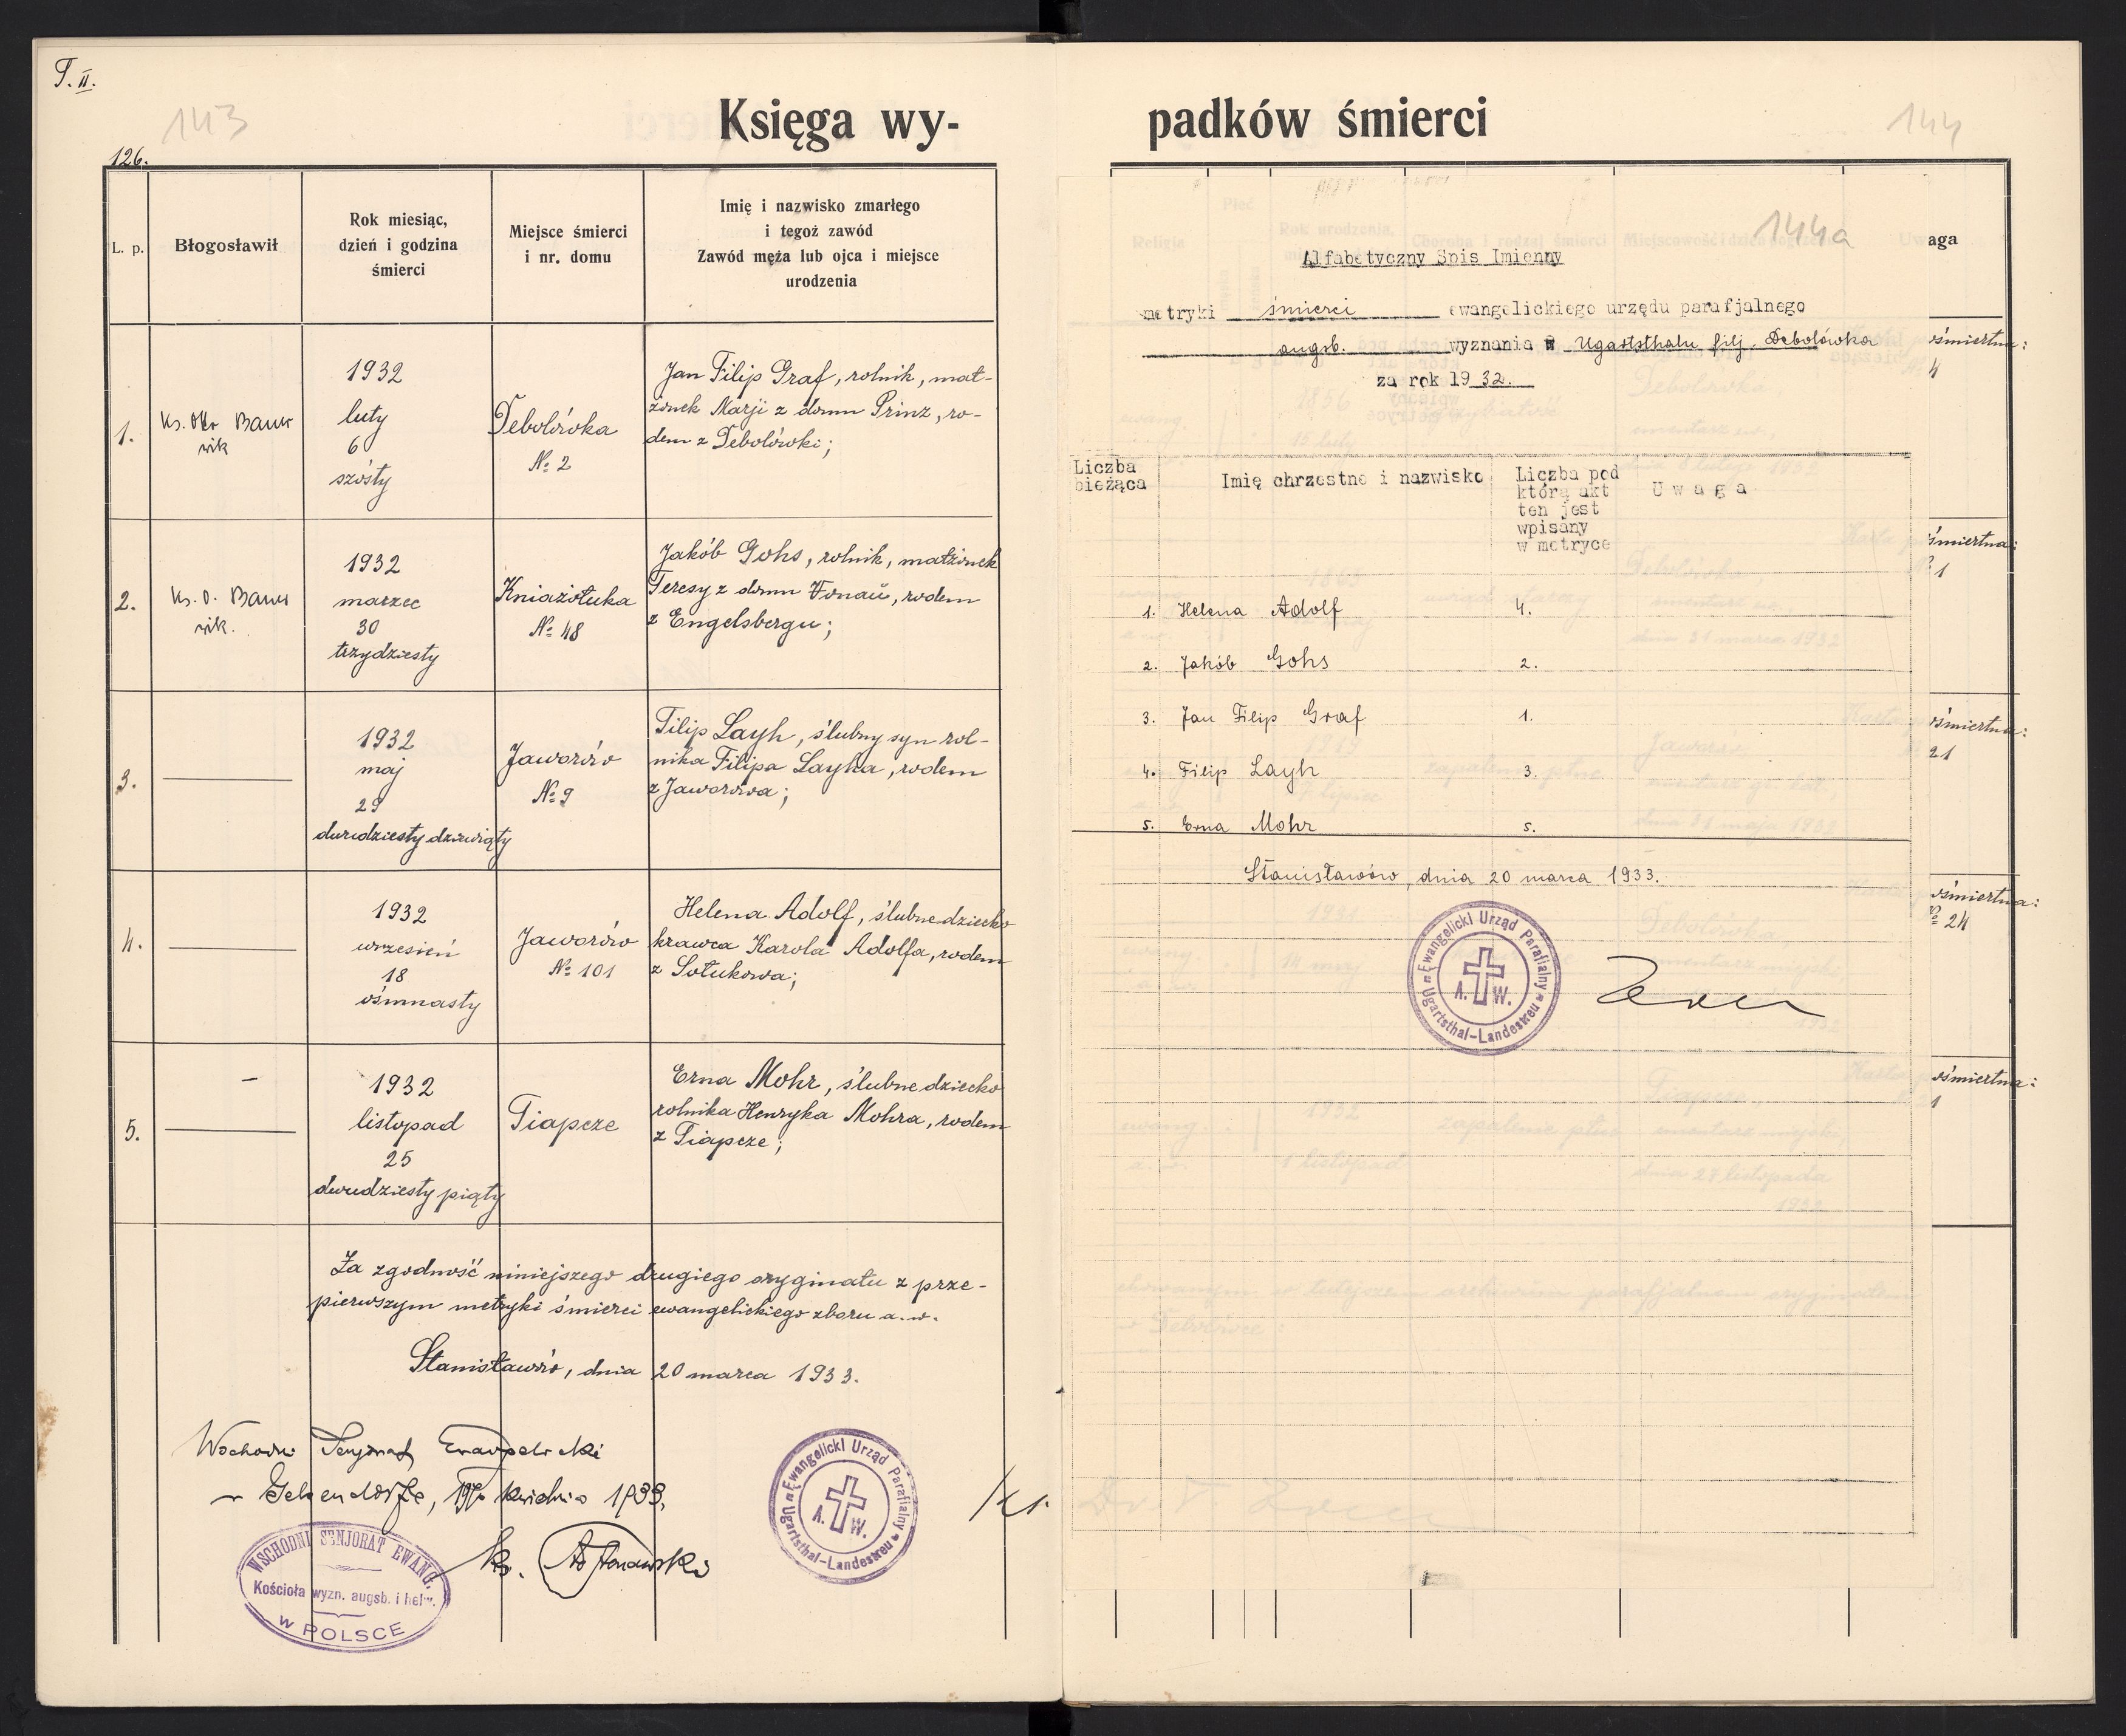 T. II.
143
126.
Księga wy-
L. p.
Błogosławił
Rok miesiąc,
dzień i godzina
śmierci
Miejsce śmierci
i nr. domu
Imię i nazwisko zmarłego
i tegoż zawód
Zawód męża lub ojca i miejsce
urodzenia
1.
Ks. Otto Bauer
wik
1932
luty
6
szósty
Debolówka
№ 2
Jan Filip Graf, rolnik, mał-
żonek Marji z domu Prinz, ro-
dem z Debolówki;
2.
Ks. O. Bauer
wik.
1932
marzec
30
trzydziesty
Kniaźołuka
№ 48
Jakób Gohs, rolnik, małżonek
Teresy z domu
, rodem
z Engelsbergu;
3.
1932
maj
29
dwudziesty dziewiąty
Jaworów
№ 9
Filip Layh, ślubny syn rol-
nika Filipa Layha, rodem
z Jaworowa;
4.
1932
wrzesień
18
ośmnasty
Jaworów
№ 101
Helena Adolf, ślubne dziecko
krawca Karola Adolfa, rodem
z Sołukowa;
5.
1932
listopad
25
dwudziesty piąty
Tiapcze
Erna Mohr, ślubne dziecko
rolnika Henryka Mohra, rodem
z Tiapcze;
Za zgodność niniejszego drugiego oryginału z prze-
pierwszym metryki śmierci ewangelickiego zboru a. w.
Stanisławów, dnia 20 marca 1933.
Wschodni Senjorat Ewangelicki
w Gelsendorfie, 19go kwietnia 1933.
ks.
WSCHODNI SENJORAT EWANG.
Kościoła wyzn. augsb. i helw.
w POLSCE
Ewangelicki Urząd Parafialny
A. W.
Ugartsthal-Landestreu
padków śmierci
144
144a
aga
Alfabetyczny Spis Imienny
metryki śmierci ewangelickiego urzędu parafjalnego
augsb. wyznania w Ugartsthalu filj. Debolówka
za rok 1932.
Liczba
bieżąca
Imię chrzestne i nazwisko
Liczba pod
którą akt
ten jest
wpisany
w metryce
Uwaga
1. Helena Adolf 4.
2. Jakób Gohs 2.
3. Jan Filip Graf 1.
4. Filip Layh 3.
5. Erna Mohr 5.
Stanisławów, dnia 20 marca 1933.
Ewangelicki Urząd Parafialny
A. W.
Ugartsthal-Landestreu
ośmiertna:
4
ośmiertna:
1
ośmiertna:
21
ośmiertna:
№ 24
ośmiertna:
1